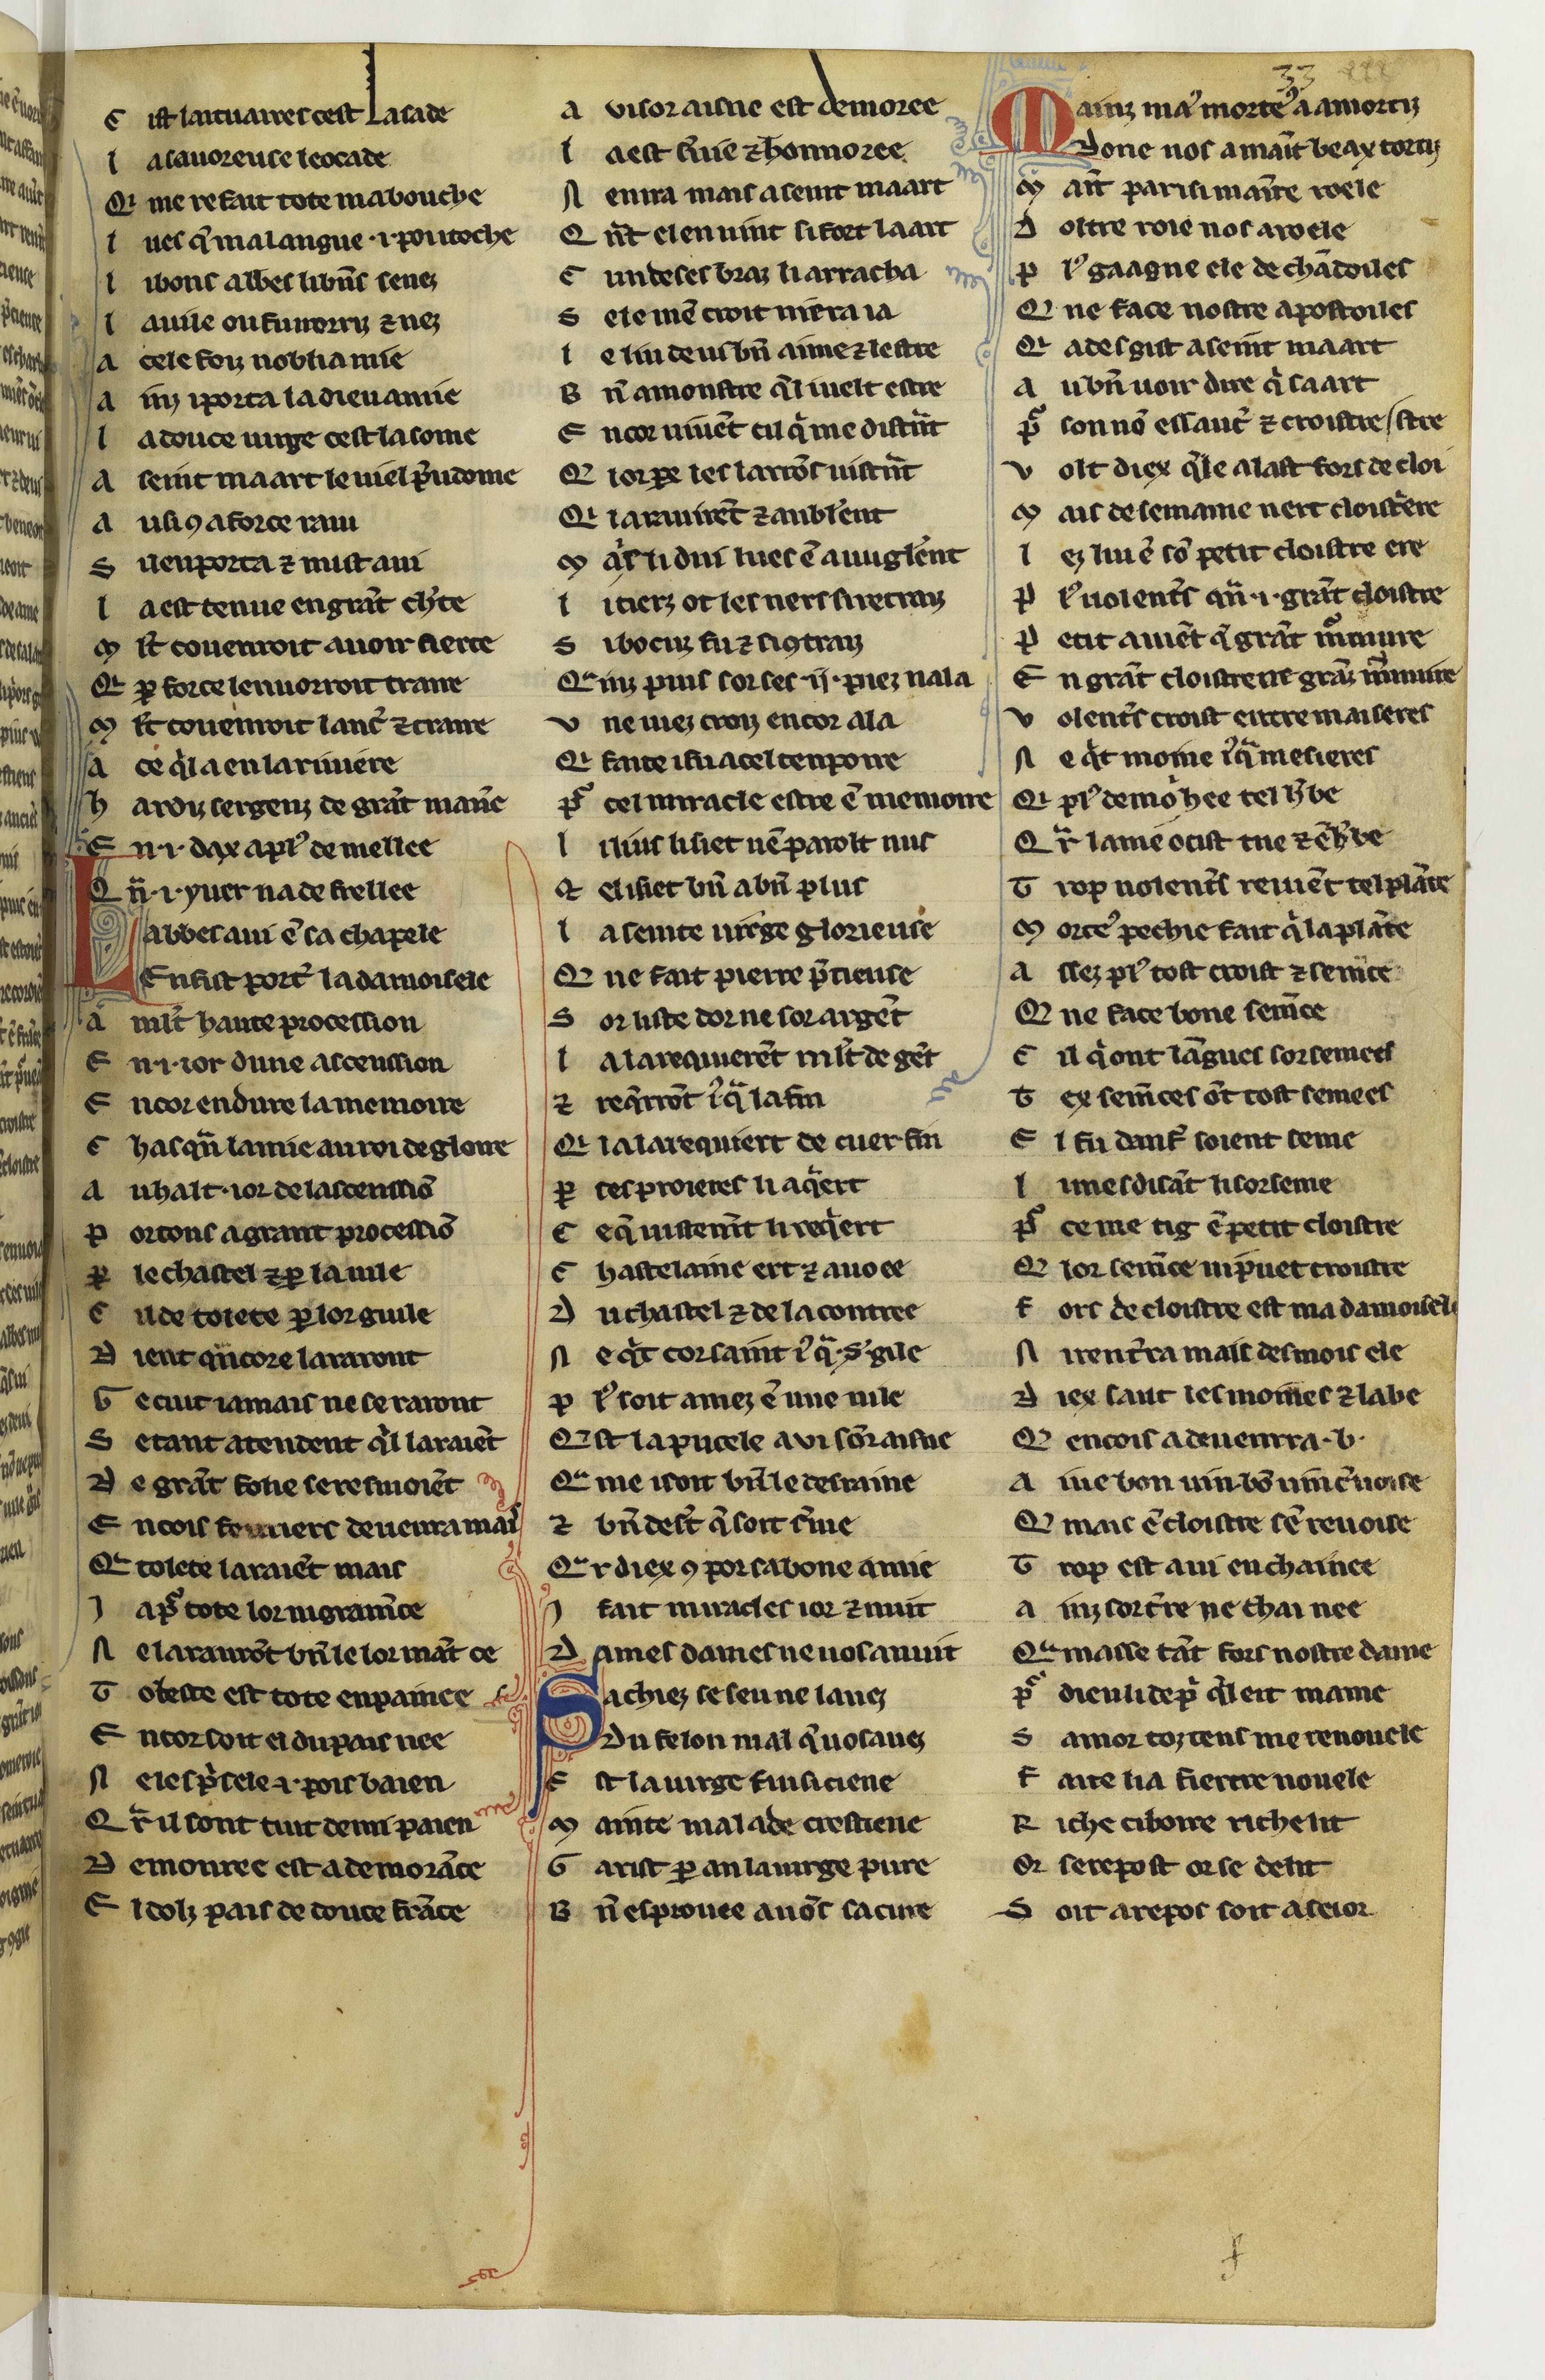 C ist laituaires cest lasade
L a sauoreuse leocade
Qi me refait tote ma bouche
L ues q̄ ma langue ·i· poi i toche
L i bons abbes li bn̄s senez
L a uile ou fu norriz ⁊ nez
A cele foiz noblia mie
A inz i porta la dieu amie
L a douce uirge cest la some
A seint maart le uiel p̄udome
A usi ꝯ a force raui
S uen porta ⁊ mist a ui
L a est tenue en grāt ch'te
M l't couenroit auoir fierte
Qi ꝑ force len uorroit traire
M l't couenroit lanc' ⁊ traire
A ce q̄l a en la riuiere
H ardiz sergenz de grāt maniē
E n ·i· dax a pl' de mellee
Q n̄ ·i· yuer na de frellee
L abbes a ui ē sa chapele
En fist port' la damoisele
A ml't haute procession
E n ·i· ior dune ascension
E ncor en dure la memoire
C hasqn̄ lamie au roi de gloire
A u halt ior de lascensiō
P ortons a grant processiō
ꝑ le chastel ⁊ ꝑ la uile
C il de tolete ꝑ lor guile
D ient qn̄core la raront
G e cuit iamais ne se raront
S e tant atendent q̄l la raiēt
D e grāt folie se resmoiēt
E ncois feuriers deuenra mais
Qe tolete la raiēt mais
J a por tote lor nigramāce
N e la raurōt bn̄ le lor māt ce
T oleste est tote enpainee
E ncor soit el du pais nee
N e les p̄sele ·i· pois baien
Q r̄ il sont tuit demi paien
D emouree est a demorāce
E l dolz pais de douce frāce
A ui sor aisne est demoree
L a est s'uie ⁊ honnoree
N enira mais a seint maart
Q n̄t el en uint si fort la art
C un de ses braz li arracha
S ele mē croit nira ia
L e liu deus bn̄ aime ⁊ lestre
B n̄ a monstre q̄l i uelt estre
E ncor uiuēt cil q̄ me distrēt
Q ior ꝑe les larrōs uistrēt
Qi la rauirēt ⁊ anblerent
M ais li dui lues ē auuglerent
L i tierz ot les ners si retraiz
S i bociz fu ⁊ si ꝯtraiz
Qainz puis sor ses ·ii· piez nala
V ne uiez croiz encor a la
Qi faite i fu a cel tenpoire
P or cel miracle estre ē memoire
L i lius li siet uē parolt nus
E l i siet bn̄ a bn̄ plus
L a seinte uirge glorieuse
Q ne fait pierre p̄cieuse
S or liste dor ne sor argēt
L a la requierēt ml't de gēt
⁊ req̄rrōt iusq̄ la fin
Qi la la requiert de cuer fin
ꝑ ses proieres li aq̄ert
C e q̄ uistemt li req̄ert
C hastelaine ert ⁊ auoee
D u chastel ⁊ de la contree
N e q̄t cor saint iusq̄ s' gile
P l' soit amez ē une uile
Q st la pucele a ui sōr aisne
Qe me i soit bn̄ le desraine
⁊ bn̄ dest q̄ soit s'uie
Qr diex ꝯ por sa bone amie
J fait miracles ior ⁊ nuit
D ames dames ne uos anuit
Sachiez se le u ne lauez
Du felon mal q̄ uos auez
E st la uirge fuisiciene
M ainte malade crestiene
G arist ꝑ an la uirge pure
B n̄ esprouee auōs sa cure
33
M ainz ma' morte' a amortiz
Done nos a maīt beax tortiz
M aīt parisi mainte roele
D oltre roie nos a roele
P l' gaagne ele de chādoiles
Q ne face nostre apostoiles
Q ades gist a seint maart
A u bn̄ uoir dire q̄ sa art
P or son nō essauc' ⁊ croistre
V olt diex q̄le alast fors de cloistre
M ais de semaine nert cloistrere
L ez liu ē sō petit cloistre ere
P l' uolent's qn̄ ·i· grāt cloistre
P etit auiēt q̄ grāt m'mure
E n grāt cloistre ne grāz m'mure
V olent's croist entre maiseres
N e q̄t moine iusq̄ mesieres
Qi pl' de mō hee tel h'be
Q r̄ lame ocist tue ⁊ ēh'be
T rop uolent's reuiēt tel plāte
M orte' pechie fait q̄ la plāte
A ssez pl' tost croist ⁊ semēce
Q ne face bone semēce
C il q̄ ont lāgues sorsemees
T ex semēces ōt tost semees
E l fu danf' soient seme
L i mesdisāt li sorseme
P or ce me tig ē petit cloistre
Q lor semēce ni puet croistre
F ors de cloistre est ma damoisele
N i rent'ra mais des mois ele
D iex saut les moines ⁊ labe
Q encois a deuenrra ·b·
A iue bon uin bō uin c'uoise
Q mais ē cloistre sē reuoise
T rop est a ui enchainee
A inz sor t're ne chai nee
Qamasse tāt fors nostre dame
P or dieu li depri q̄l eit mame
S amor toz tens me renouele
F aite li a fiertre nouele
R iche ciboire riche lit
Or se repost or se delit
S oit a repos soit a seior